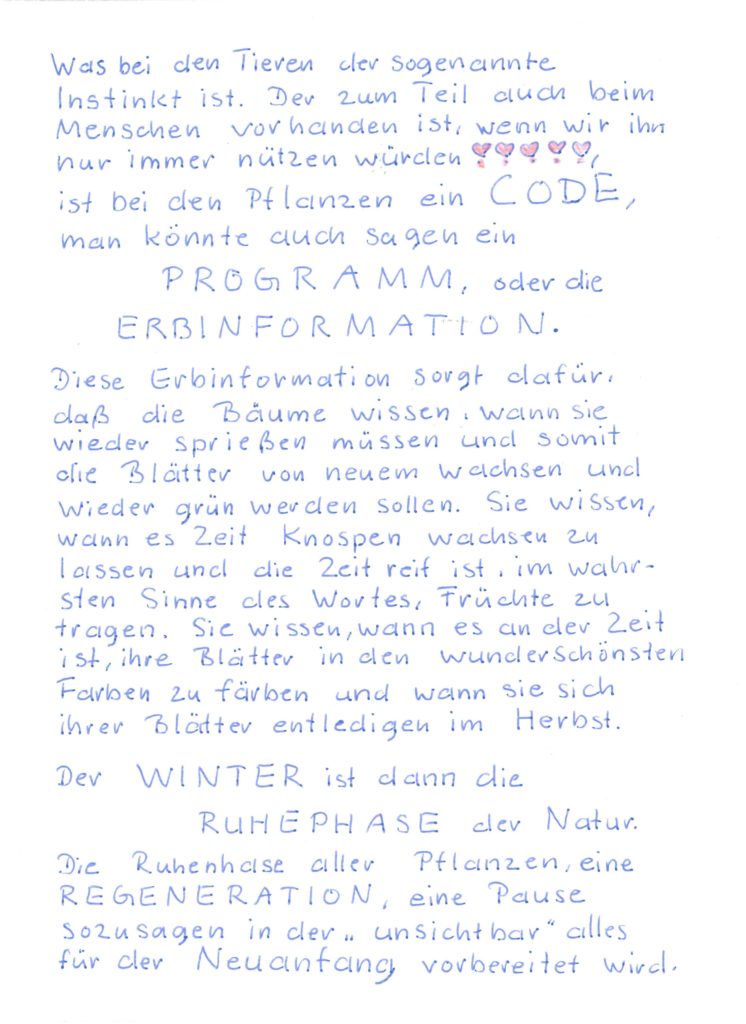 Was bei den Tieren der sogenannte
Instinkt ist. Der zum Teil auch beim
Menschen vorhanden ist, wenn wir ihn
nur immer nützen würden❣❣❣❣❣,
ist bei den Pflanzen ein CODE,
man könnte auch sagen ein
PROGRAMM, oder die
ERBINFORMATION.
Diese Erbinformation sorgt dafür,
daß die Bäume wissen, wann sie
wieder sprießen müssen und somit
die Blätter von neuem wachsen und
wieder grün werden sollen. Sie wissen,
wann es Zeit Knospen wachsen zu
lassen und die Zeit reif ist, im wahr-
sten Sinne des Wortes, Früchte zu
tragen. Sie wissen, wann es an der Zeit
ist, ihre Blätter in den wunderschönsten
Farben zu färben und wann sie sich
ihrer Blätter entledigen im Herbst.
Der WINTER ist dann die
RUHEPHASE der Natur.
Die Ruhenhase aller Pflanzen, eine
REGENERATION, eine Pause
sozusagen in der „unsichtbar" alles
für der Neuanfang vorbereitet wird.